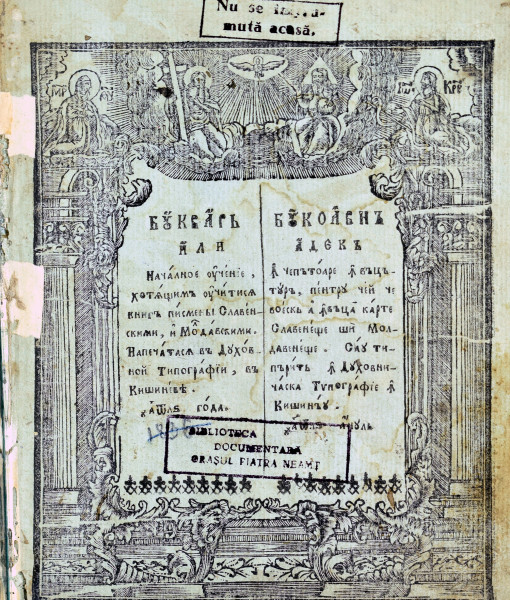 Nu se împru-
mută acasă.
БУКВА́РЬ
ИЛИ
Нача́лное оуче́нїе,
хотѧ́щимъ оучи́тисѧ
книгъ писмены̀ Славен-
скими, и҆ Молдавскими.
Напеча́тасѧ въ Дꙋхо́в-
ной Тѷпогра́фїи, въ
Кишине́вѣ.
го́да
БꙋКОА́ВНЪ
А́ДЕКЪ
ꙟ҆чепъто́аре ꙟ҆въцъ-
тꙋръ, пе́нтрꙋ чей че
вое́скъ а҆ ꙟ҆въца̀ ка́рте
Славене́ще шѝ Мол-
давене́ще. Са́ꙋ ти-
пъри́тъ ꙟ҆ Дꙋховни-
часка Тѷпогра́фїе ꙟ҆
Кишинъ́ꙋ.
а҆́нꙋль
BIBLIOTECA
DOCUMENTARA
ORAȘUL PIATRA NEAMȚ